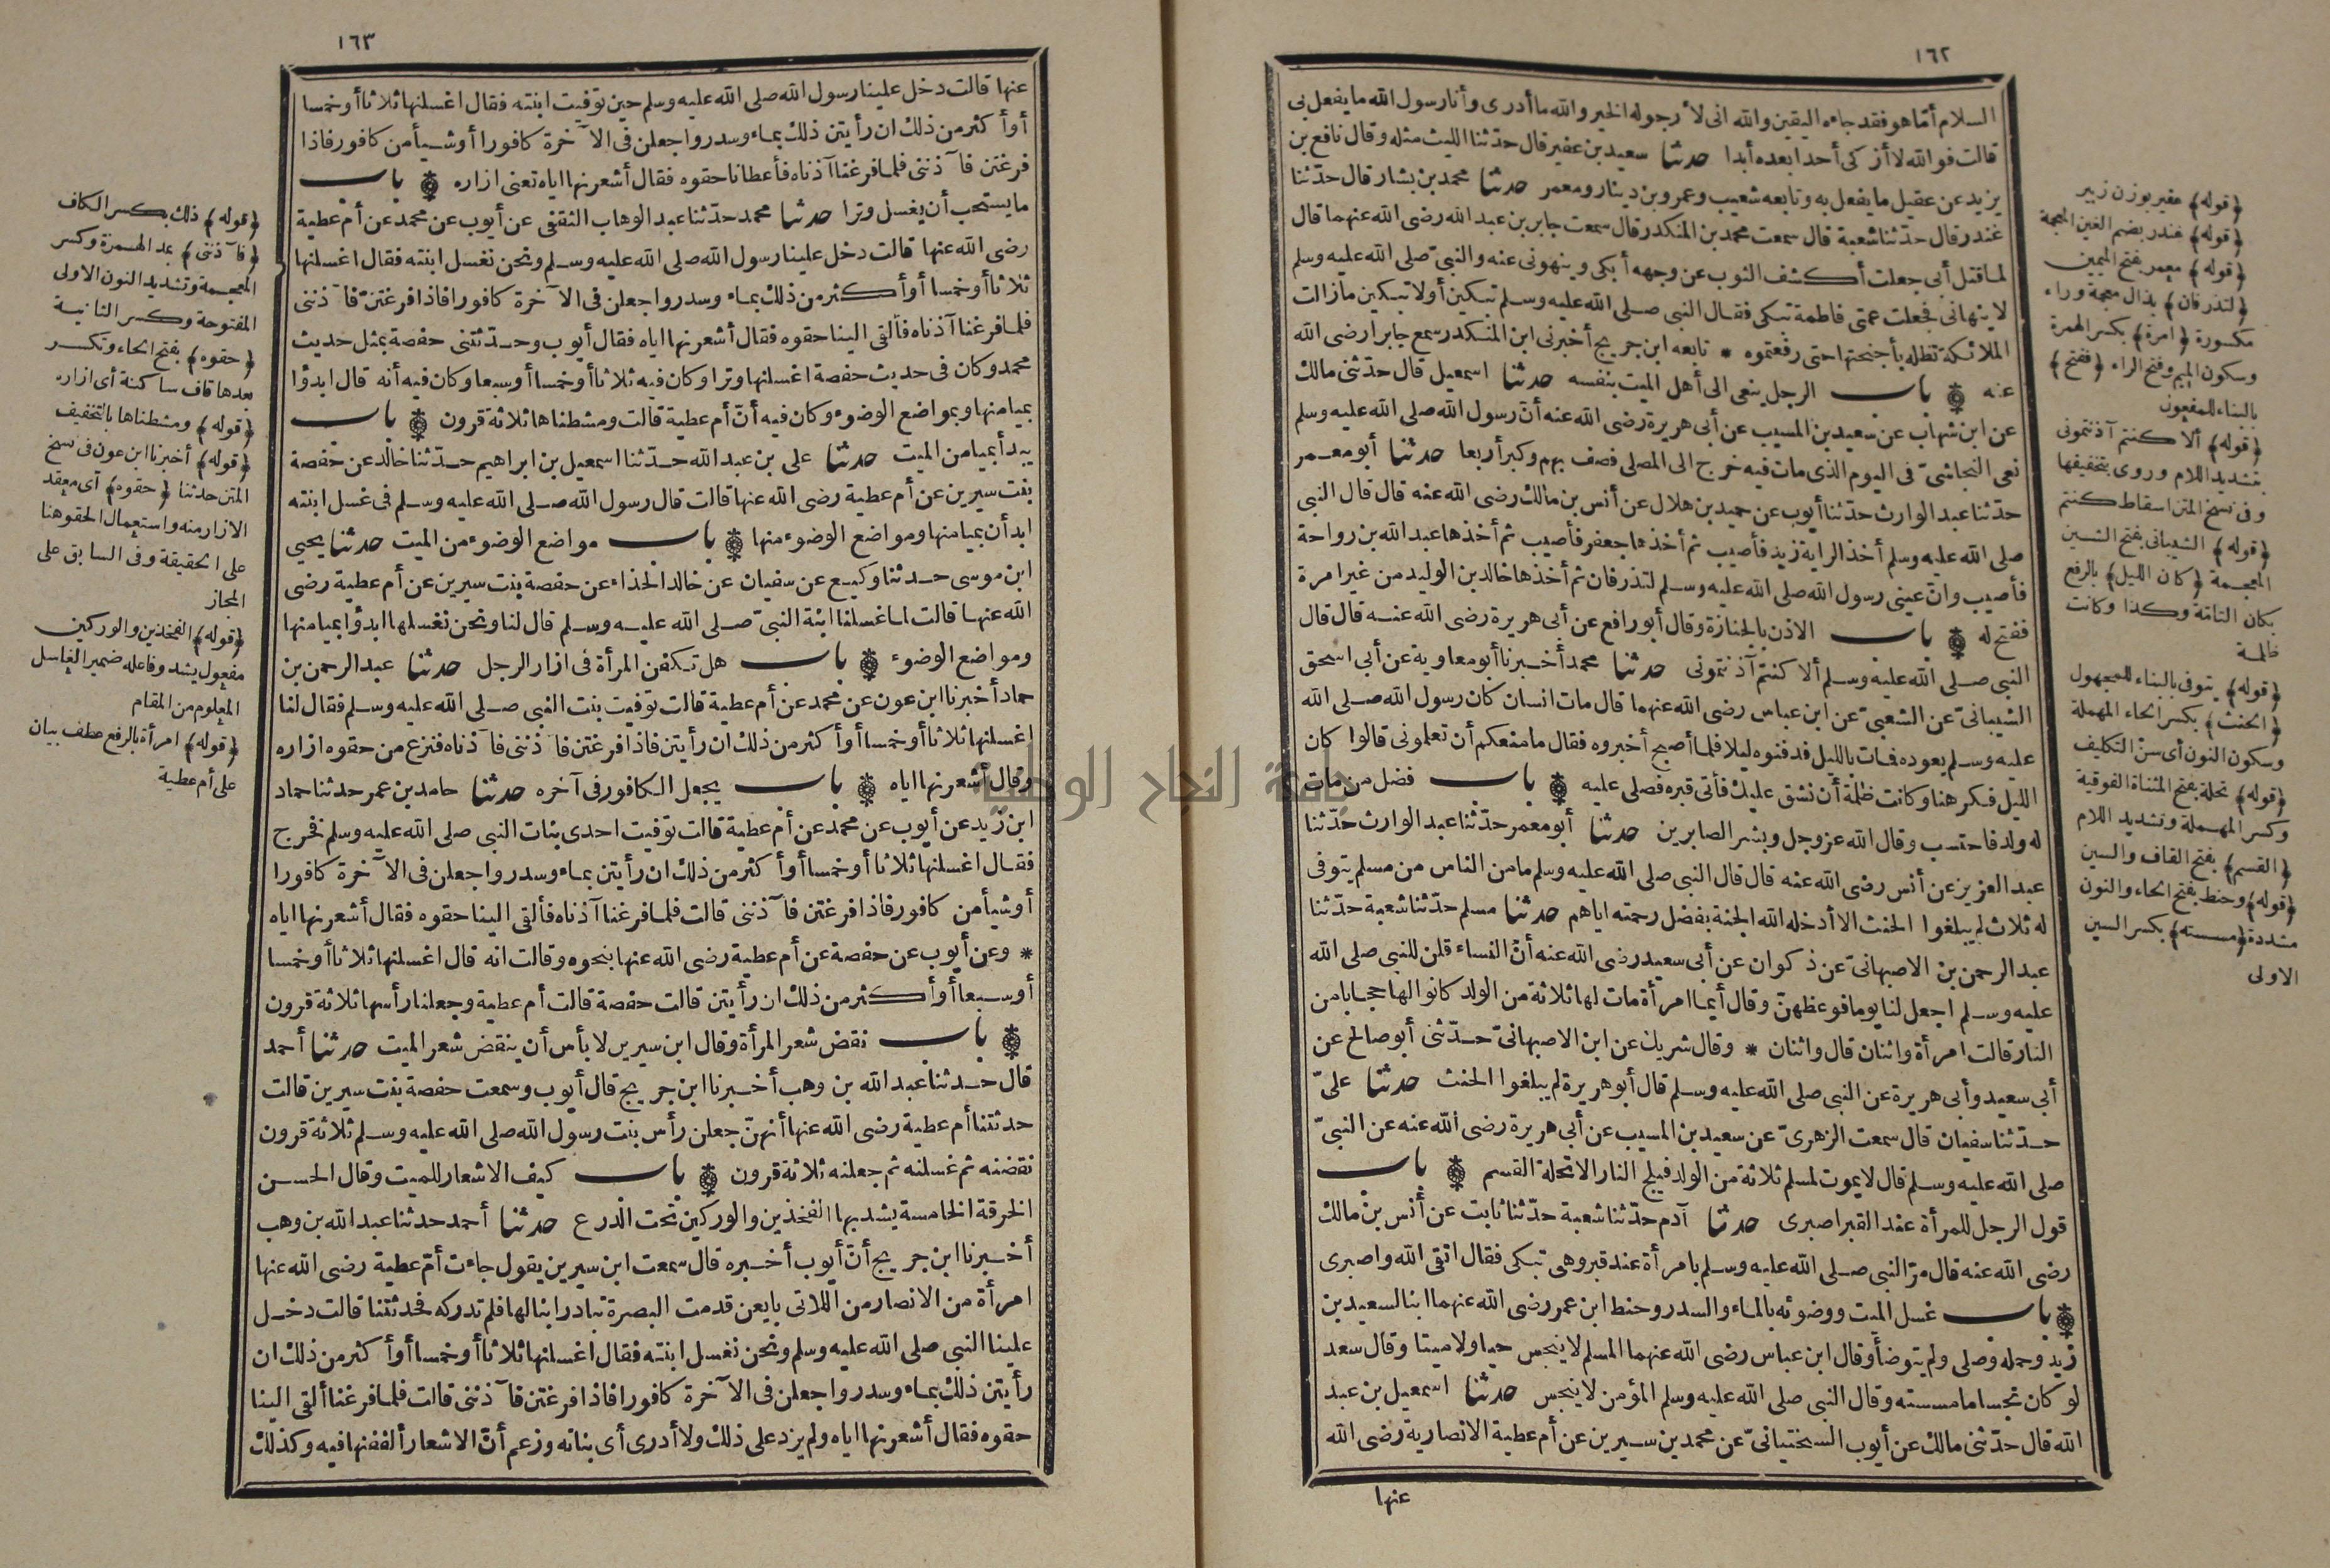 ١٦٢
السلام أمّا هو فقد جاءه اليقين والله انى لأرجو له الخير والله ما أدرى وأنا رسول الله ما يفعل بى
قالت فوالله لا أزكى أحدا بعده أبدا حدثنا سعيد بن عفير قال حدّثنا الليث مثله وقال نافع بن
يزيد عن عقيل ما يفعل به وتابعه شعيب وعمرو بن دينار ومعمر حدثنا محمد بن بشار قال حدّثنا
غندر قال حدّثنا شعبة قال سمعت محمد بن المنكدر قال سمعت جابر بن عبد الله رضى الله عنهما قال
لما قتل أبى جعلت أكشف الثوب عن وجهه أبكى وينهونى عنه والنبىّ صلى الله عليه وسلم
لا ينهانى فجعلت عمتى فاطمة تبكى فقال النبى صلى الله عليه وسلم تبكين أولا تبكين ما زالت
الملائكة تظله بأجنحتها حتى رفعتموه * تابعه ابن جريج أخبرنى ابن المنكدر سمع جابرا رضى الله
عنه باب الرجل ينعى الى أهل الميت بنفسه حدثنا اسمعيل قال حدّثنى مالك
عن ابن شهاب عن سعيد بن المسيب عن أبى هريرة رضى الله عنه أنّ رسول الله صلى الله عليه وسلم
نعى النجاشىّ فى اليوم الذى مات فيه خرج الى المصلى فصف بهم وكبر أربعا حدثنا أبو معمر
حدّثنا عبد الوارث حدّثنا أيوب عن حميد بن هلال عن أنس بن مالك رضى الله عنه قال قال النبى
صلى الله عليه وسلم أخذ الراية زيد فأصيب ثم أخذها جعفر فأصيب ثم أخذها عبد الله بن رواحة
فأصيب وانّ عينى رسول الله صلى الله عليه وسلم لتذرفان ثم أخذها خالد بن الوليد من غير امرة
ففتح له باب الاذن بالجنازة وقال أبو رافع عن أبى هريرة رضى الله عنه قال قال
النبى صلى الله عليه وسلم ألا كنتم آذنتمونى حدثنا محمد أخبرنا أبو معاوية عن أبى اسحق
الشيبانىّ عن الشعبىّ عن ابن عباس رضى الله عنهما قال مات انسان كان رسول الله صلى الله
عليه وسلم يعوده فمات بالليل فدفنوه ليلا فلما أصبح أخبروه فقال ما منعكم أن تعلمونى قالوا كان
الليل فكرهنا وكانت ظلمة أن نشق عليك فأتى قبره فصلى عليه باب فضل من مات
له ولد فاحتسب وقال الله عز وجل وبشر الصابرين حدثنا أبو معمر حدّثنا عبد الوارث حدّثنا
عبد العزيز عن أنس رضى الله عنه قال قال النبى صلى الله عليه وسلم ما من الناس من مسلم يتوفى
له ثلاث لم يبلغوا الحنث الا أدخله الله الجنة بفضل رحمته اياهم حدثنا مسلم حدّثنا شعبة حدّثنا
عبد الرحمن بن الاصبهانىّ عن ذكوان عن أبى سعيد رضى الله عنه أنّ النساء قلن للنبى صلى الله
عليه وسلم اجعل لنا يوما فوعظهنّ وقال أيما امرأة مات لها ثلاثة من الولد كانوا لها حجابا من
النار قالت امرأة واثنان قال واثنان * وقال شريك عن ابن الاصبهانىّ حدّثنى أبو صالح عن
أبى سعيد وأبى هريرة عن النبى صلى الله عليه وسلم قال أبو هريرة لم يبلغوا الحنث حدثنا علىّ
حدّثنا سفيان قال سمعت الزهرىّ عن سعيد بن المسيب عن أبى هريرة رضى الله عنه عن النبىّ
صلى الله عليه وسلم قال لا يموت لمسلم ثلاثة من الولد فيلج النار الا تحلة القسم باب
قول الرجل للمرأة عند القبر اصبرى حدثنا آدم حدّثنا شعبة حدّثنا ثابت عن أنس بن مالك
رضى الله عنه قال مرّ النبى صلى الله عليه وسلم بامرأة عند قبر وهى تبكى فقال اتقى الله واصبرى
باب غسل الميت ووضوئه بالماء والسدر وحنط ابن عمر رضى الله عنهما ابنا لسعيد بن
زيد وحمله وصلى ولم يتوضأ وقال ابن عباس رضى الله عنهما المسلم لا ينجس حيا ولا ميتا وقال سعد
لو كان نجسا ما مسسته وقال النبى صلى الله عليه وسلم المؤمن لا ينجس حدثنا اسمعيل بن عبد
الله قال حدّثنى مالك عن أيوب السختيانىّ عن محمد بن سيرين عن أم عطية الانصارية رضى الله
عنها
(قوله) عفير بوزن زبير
(قوله) غندر بضم الغين المعجمة
(قوله) معمر بفتح الميمين
(لتذرفان) بذال معجمة وراء
مكسورة (امرة) بكسر الهمزة
وسكون الميم وفتح الراء (ففتح)
بالبناء للمفعول
(قوله) ألا كنتم آذنتمونى
بتشديد اللام وروى بتخفيفها
وفى نسخ المتن اسقاط كنتم
(قوله) الشيبانى بفتح الشين
المعجمة (كان الليل) بالرفع
بكان التامّة وكذا وكانت
ظلمة
(قوله) يتوفى بالبناء للمجهول
(الحنث) بكسر الحاء المهملة
وسكون النون أى سنّ التكليف
(قوله) تحلة بفتح المثناة الفوقية
وكسر المهملة وتشديد اللام
(القسم) بفتح القاف والسين
(قوله) وحنط بفتح الحاء والنون
مشددة (مسسته) بكسر السين
الاولى
١٦٣
عنها قالت دخل علينا رسول الله صلى الله عليه وسلم حين توفيت ابنته فقال اغسلنها ثلاثا أو خمسا
أو أكثر من ذلك ان رأيتن ذلك بماء وسدر واجعلن فى الآخرة كافورا أو شيأ من كافور فاذا
فرغتن فآذننى فلما فرغنا آذناه فأعطانا حقوه فقال أشعرنها اياه تعنى ازاره باب
ما يستحب أن يغسل وترا حدثنا محمد حدّثنا عبد الوهاب الثقفى عن أيوب عن محمد عن أم عطية
رضى الله عنها قالت دخل علينا رسول الله صلى الله عليه وسلم ونحن نغسل ابنته فقال اغسلنها
ثلاثا أو خمسا أو أكثر من ذلك بماء وسدر واجعلن فى الآخرة كافورا فاذا فرغتنّ فآذننى
فلما فرغنا آذناه فألقى الينا حقوه فقال أشعرنها اياه فقال أيوب وحدّثتنى حفصة بمثل حديث
محمد وكان فى حديث حفصة اغسلنها وترا وكان فيه ثلاثا أو خمسا أو سبعا وكان فيه أنه قال ابدؤا
بميامنها وبمواضع الوضوء وكان فيه أنّ أم عطية قالت ومشطناها ثلاثة قرون باب
يبدأ بميامن الميت حدثنا على بن عبد الله حدّثنا اسمعيل بن ابراهيم حدّثنا خالد عن حفصة
بنت سيرين عن أم عطية رضى الله عنها قالت قال رسول الله صلى الله عليه وسلم فى غسل ابنته
ابدأن بميامنها ومواضع الوضوء منها باب مواضع الوضوء من الميت حدثنا يحيى
ابن موسى حدثنا وكيع عن سفيان عن خالد الحذاء عن حفصة بنت سيرين عن أم عطية رضى
الله عنها قالت لما غسلنا ابنة النبىّ صلى الله عليه وسلم قال لنا ونحن نغسلها ابدؤا بميامنها
ومواضع الوضوء باب هل تكفن المرأة فى ازار الرجل حدثنا عبد الرحمن بن
حماد أخبرنا ابن عون عن محمد عن أم عطية قالت توفيت بنت النبى صلى الله عليه وسلم فقال لنا
اغسلنها ثلاثا أو خمسا أو أكثر من ذلك ان رأيتن فاذا فرغتن فآذننى فآذناه فنزع من حقوه ازاره
وقال أشعرنها اياه باب يجعل الكافور فى آخره حدثنا حامد بن عمر حدثنا حماد
ابن زيد عن أيوب عن محمد عن أم عطية قالت توفيت احدى بنات النبى صلى الله عليه وسلم فخرج
فقال اغسلنها ثلاثا أو خمسا أو أكثر من ذلك ان رأيتن بماء وسدر واجعلن فى الآخرة كافورا
أو شيأ من كافور فاذا فرغتن فآذننى قالت فلما فرغنا آذناه فألقى الينا حقوه فقال أشعرنها اياه
* وعن أيوب عن حفصة عن أم عطية رضى الله عنها بنحوه وقالت انه قال اغسلنها ثلاثا أو خمسا
أو سبعا أو أكثر من ذلك ان رأيتن قالت حفصة قالت أم عطية وجعلنا رأسها ثلاثة قرون
باب نقض شعر المرأة وقال ابن سيرين لا بأس أن ينقض شعر الميت حدثنا أحمد
قال حدثنا عبد الله بن وهب أخبرنا ابن جريج قال أيوب وسمعت حفصة بنت سيرين قالت
حدثتنا أم عطية رضى الله عنها أنهنّ جعلن رأس بنت رسول الله صلى الله عليه وسلم ثلاثة قرون
نقضنه ثم غسلنه ثم جعلنه ثلاثة قرون باب كيف الاشعار للميت وقال الحسن
الخرقة الخامسة يشد بها الفخذين والوركين تحت الدرع حدثنا أحمد حدثنا عبد الله بن وهب
أخبرنا ابن جريج أنّ أيوب أخبره قال سمعت ابن سيرين يقول جاءت أمّ عطية رضى الله عنها
امرأة من الانصار من اللاتى بايعن قدمت البصرة تبادر ابنا لها فلم تدركه فحدثتنا قالت دخل
علينا النبى صلى الله عليه وسلم ونحن نغسل ابنته فقال اغسلنها ثلاثا أو خمسا أو أكثر من ذلك ان
رأيتن ذلك بماء وسدر واجعلن فى الآخرة كافورا فاذا فرغتن فآذننى قالت فلما فرغنا ألقى الينا
حقوه فقال أشعرنها اياه ولم يزد على ذلك ولا أدرى أى بناته وزعم أنّ الاشعار ألففنها فيه وكذلك
(قوله) ذلك بكسر الكاف
(فآذننى) بمد الهمزة وكسر
المعجمة وتشديد النون الاولى
المفتوحة وكسر الثانية
(حقوه) بفتح الحاء وتكسر
بعدها قاف ساكنة أى ازاره
(قوله) ومشطناها بالتخفيف
(قوله) أخبرنا ابن عون فى نسخ
المتن حدثنا (حقوه) أى معقد
الازار منه واستعمال الحقو هنا
على الحقيقة وفى السابق على
المجاز
(قوله) الفخذين والوركين
مفعول يشد وفاعله ضمير الغاسل
المعلوم من المقام
(قوله) امرأة بالرفع عطف بيان
على أم عطية
جامعة النجاح الوطنية